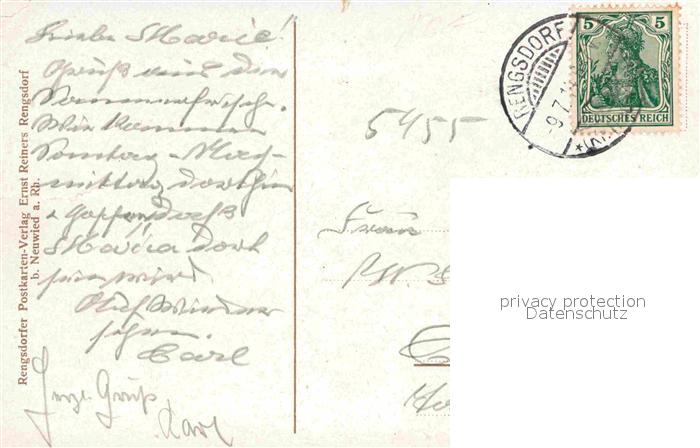 Liebe Marie!
Gruß aus der
Sommerfrische.
Wir kommen
Sonntag-Nach-
mittag dorthin
u. hoffen daß
Maria dort
sein wird
Auf Wieder
sehen.
Carl
Herzl. Gruß
Karl
Rengsdorfer Postkarten-Verlag Ernst Reiners Rengsdorf
b. Neuwied a. Rh.
5455
Frau
W.
RENGSDORF
-9.7.1
5 5
DEUTSCHES REICH
privacy protection
Datenschutz